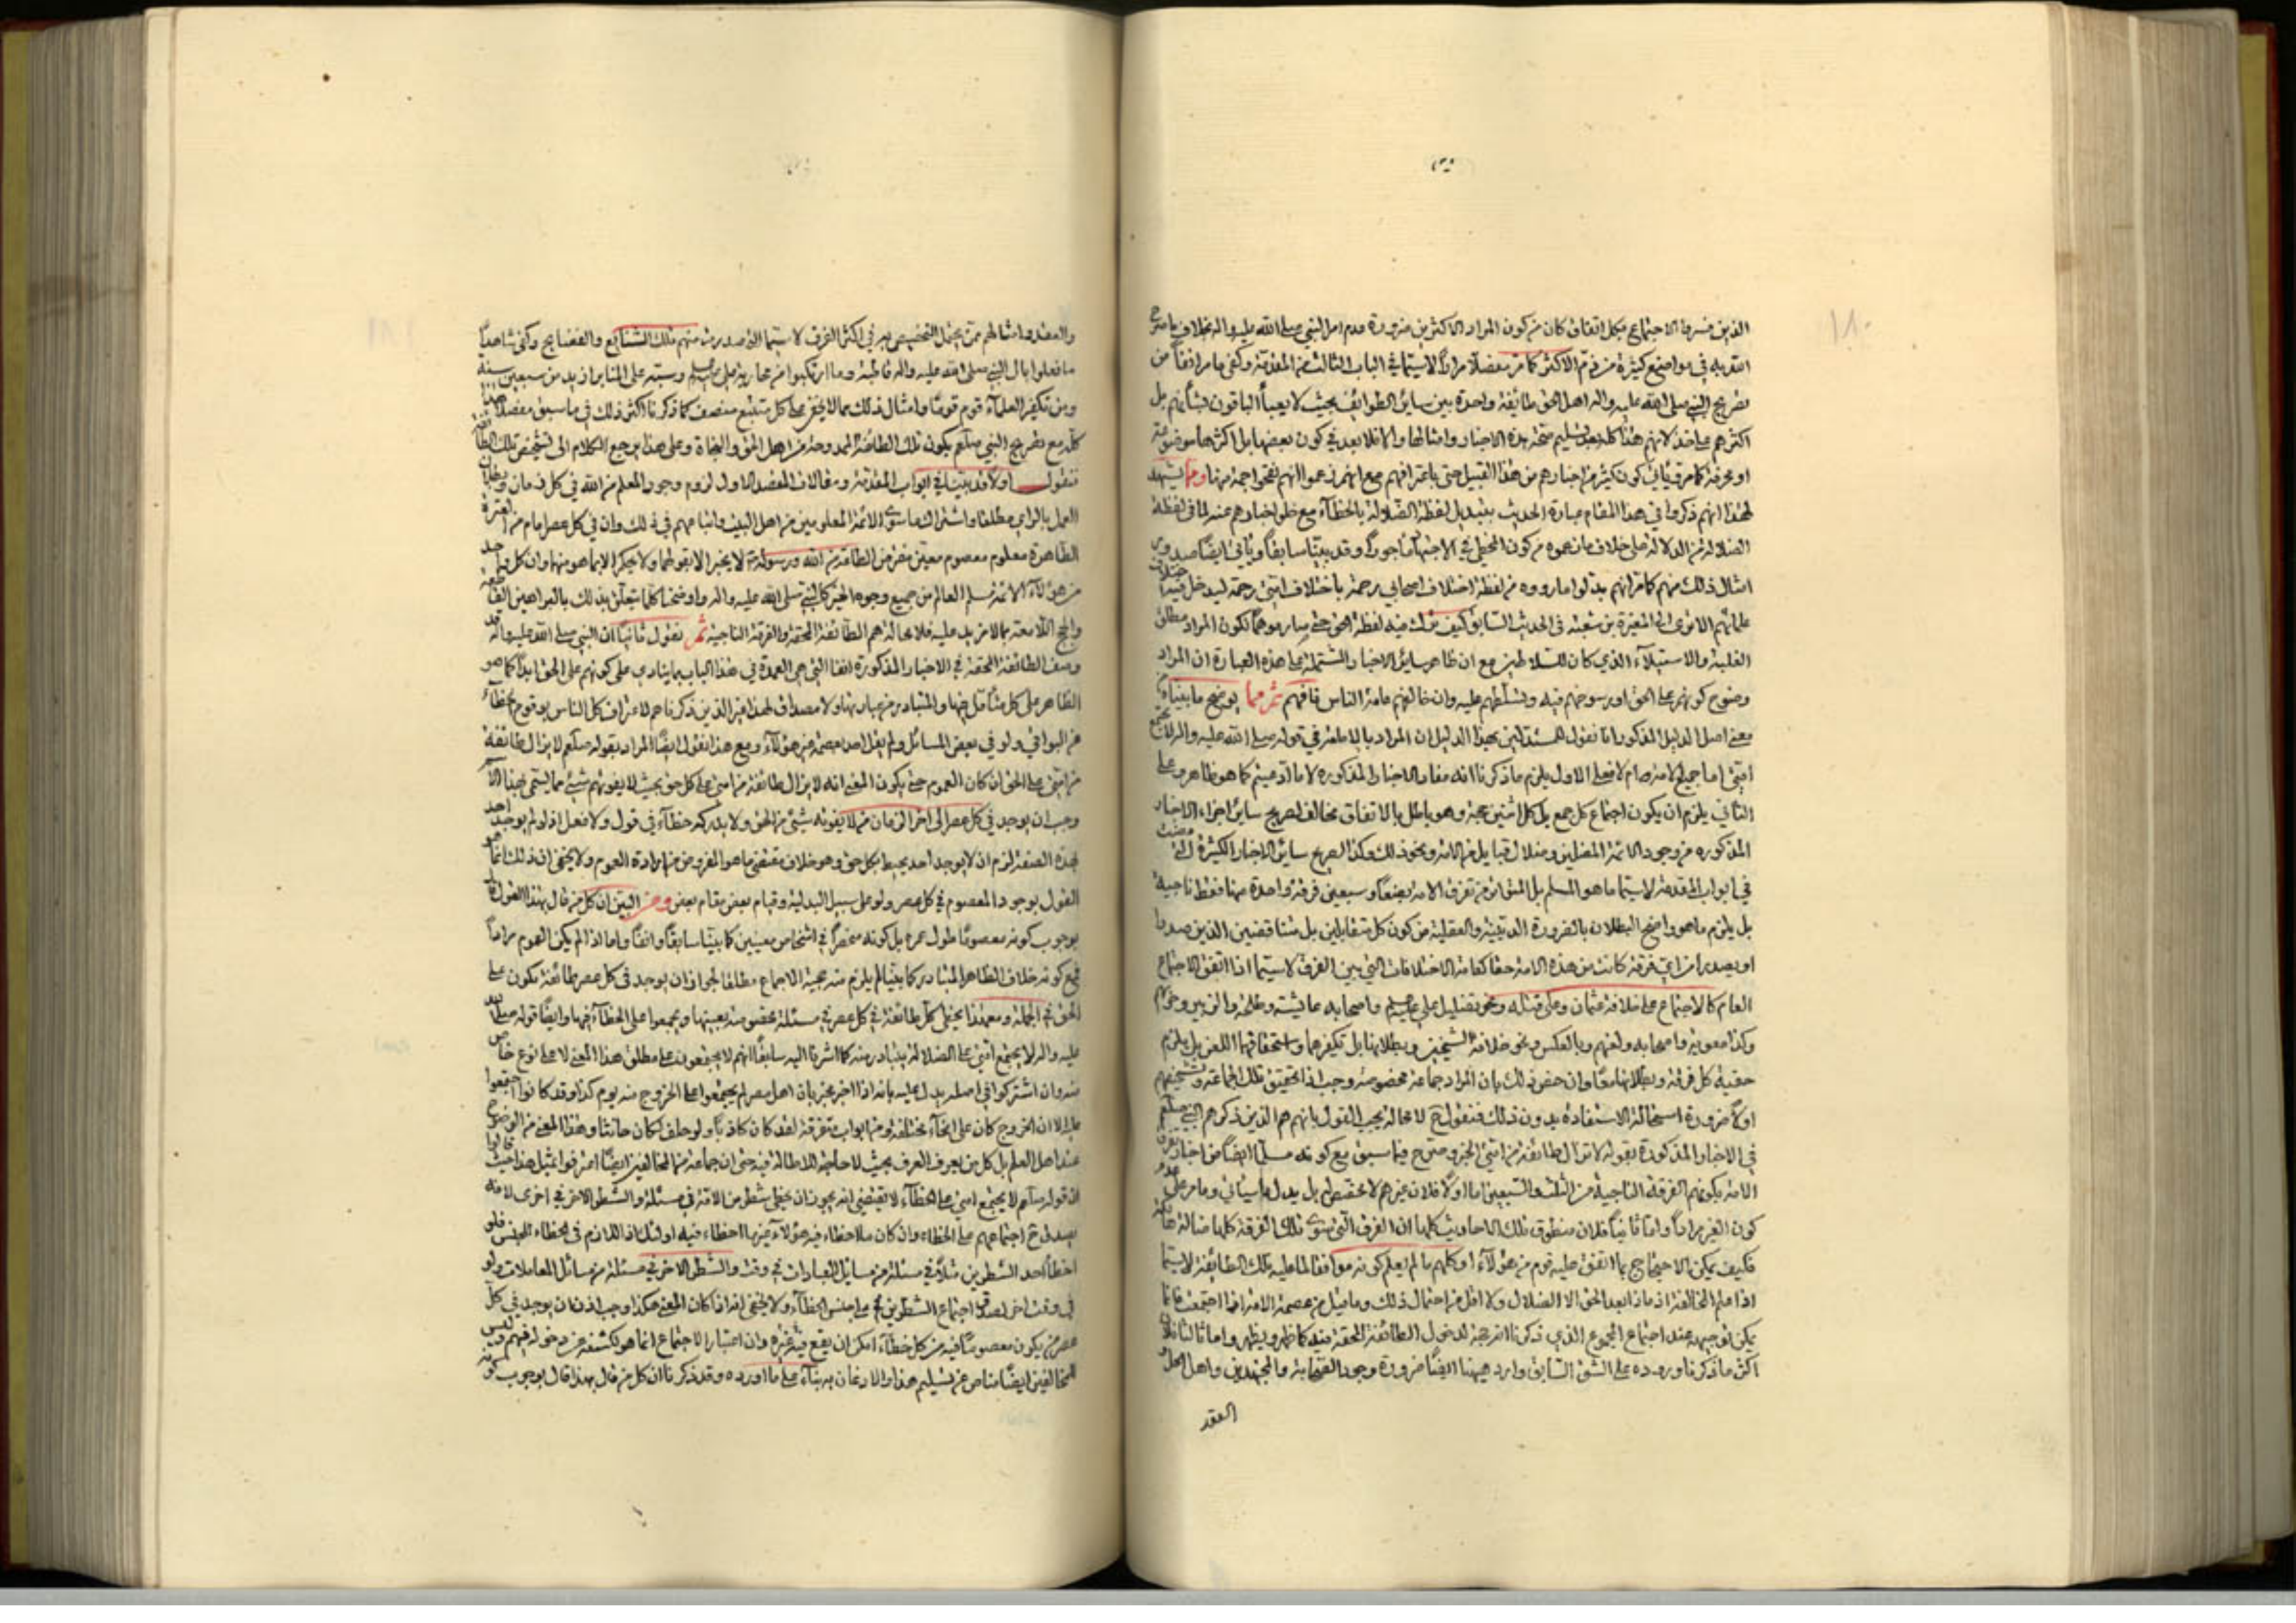 الذين فسروا الاجتماع بكل اتفاق كان من كون المراد الاكثرين ضرورة عدم امر النبي صلى الله عليه واله بخلاف ما صرح
الله به في مواضع كثيرة من ذم الاكثر كما مر مفصلا مرارا لا سيما في الباب الثالث من المقدمة وكفى ما مر انفا من
تصريح النبي صلى الله عليه واله اهل الحق طائفة واحدة بين سائر الطوائف بحيث لا يعبأ الباقون بل
اكثرهم على خذلانهم هذا كله بعد تسليم صحة هذه الاخبار وامثالها والا فلا بعد في كون بعضها بل اكثرها موضوعة
او محرفة كما مر ويأتي كون كثير من اخبارهم من هذا القبيل حتى باعترافهم مع انهم زعموا انهم نقحوا جمة منها ومما يشهد
لهذا انهم ذكروا في هذا المقام عبارة الحديث بتبديل لفظة الضلالة بالخطاء مع خلو اخبارهم عنه لما في لفظة
الضلالة من الدلالة على خلاف ما زعموه من كون المخطي في الاجتهاد مأجورا وقد بينا سابقا ويأتي ايضا صدور
امثال ذلك منهم كما مر انهم بدلوا ما رووه من لفظة اختلاف اصحابي رحمة باختلاف امتي رحمة ليدخل فيه اختلاف
علمائهم الا ترى الى المغيرة بن شعبة في الحديث السابق كيف ترك فيه لفظة الحق حتى صار موهما لكون المراد مطلق
الغلبة والاستيلاء الذي كان للسلاطين مع ان ظاهر سائر الاخبار المشتملة على هذه العبارة ان المراد
وضوح كونهم على الحق او رسوخهم فيه وتسلطهم عليه وان خالفهم عامة الناس فافهم ثم مما يوضح ما بيناه
معنى اصل الدليل المذكور انا نقول للمستدلين بهذا الدليل ان المراد بالامة في قوله صلى الله عليه واله لا تجتمع
امتي اما جميع الامة ام لا فعلى الاول يلزم ما ذكرنا انه مفاد الاخبار المذكورة لا ما ادعيتم كما هو ظاهر وعلى
الثاني يلزم ان يكون اجتماع كل جمع بل كل اثنين حجة وهو باطل بالاتفاق مخالف لصريح سائر اجزاء الاخبار
المذكورة من وجود الائمة المضلين وضلال قبايل من الامة ونحو ذلك وكذا لصريح سائر الاخبار الكثيرة التي مضت
في ابواب المقدمة لا سيما ما هو المسلم بل المتواتر من تفرق الامة بضعا وسبعين فرقة واحدة منها فقط ناجية
بل يلزم ما هو واضح البطلان بالضرورة الدينية والعقلية من كون كل متقابلين بل متناقضين الذين صدرا
او يصدر من اي فرقة كانت من هذه الامة حقا كعامة الاختلافات التي بين الفرق لا سيما اذا اتفق الاجتماع
العام كالاجتماع على خلافة عثمان وعلى قتله ونحو تضليل علي عليه السلام واصحابه عايشة وطلحة والزبير وحزبهم
وكذا معوية واصحابه ولعنهم وبالعكس ونحو خلافة الشيخين وبطلانها بل تكفيرهما واستحقاقهما اللعن بل يلزم
حقية كل فرقة وبطلانها معا وان خص ذلك بان المراد جماعة مخصوصة وجب اذا تحقيق تلك الجماعة وتشخيصهم
اولا ضرورة استحالة الاستفادة بدون ذلك فنقول ح لا محالة يجب القول بانهم هم الذين ذكرهم النبي صلعم
في الاخبار المذكورة بقوله لا تزال طائفة من امتي الخبر وصرح فيما سبق مع كونه مسلما ايضا من اخبار تفرق
الامة بكونهم الفرقة الناجية من الثلث والسبعين اما اولا فلان غيرهم لا مخصص لهم بل يدل ما سيأتي وما مر على عدم
كون الغير مرادا واما ثانيا فلان منطوق تلك الاحاديث كلها ان الفرق التي سوى تلك الفرقة كلها ضالة هالكة
فكيف يمكن الاحتجاج بما اتفق عليه قوم من هؤلاء او كلهم ما لم يعلم كونه موافقا لما عليه تلك الطائفة لا سيما
اذا علم المخالفة اذ ماذا بعد الحق الا الضلال ولا اقل من احتمال ذلك وما قيل من عصمة الامة اذا اجتمعت فانما
يمكن توجيهه عند اجتماع المجموع الذي ذكرنا انه حجة لدخول الطائفة المحقة فيه كما ظهر ويظهر واما ثالثا فلان
اكثر ما ذكرنا وروده على الشق السابق وارد هيهنا ايضا ضرورة وجود الصحابة والمجتهدين واهل الحل و
العقد
والعقد وامثالهم ممن يحتمل التخصيص بهم في اكثر الفرق لا سيما الذي صدر من منهم تلك الشنائع والفضايح وكفى شاهدا
ما فعلوا بال النبي صلى الله عليه واله قاطبة وما ارتكبوا من محاربة علي عليه السلام وسبه على المنابر ازيد من سبعين سنة
ومن تكفير العلماء قوم قوما وامثال ذلك مما لا يخفى على كل متتبع منصف كما ذكرنا اكثر ذلك في ما سبق مفصلا هذا
كله مع تصريح النبي صلعم بكون تلك الطائفة الممدوحة من اهل الحق والنجاة وعلى هذا يرجع الكلام الى تشخيص تلك الطائفة
فنقول اولا قد بينا في ابواب المقدمة ومقالات المقصد الاول لزوم وجود المعلم من الله في كل زمان وبطلان
العمل بالراي مطلقا واشتراك ما سوى الائمة المعلومين من اهل البيت واتباعهم في ذلك وان في كل عصر امام من العترة
الطاهرة معلوم معصوم معين مفترض الطاعة من الله ورسوله لا يخبر الا بقولهما ولا يحكم الا بما هو منهما وان كل واحد
من هؤلاء الائمة اعلم العالم من جميع وجوه الخير كالنبي صلى الله عليه واله واوضحنا كلما يتعلق بذلك بالبراهين القاطعة
والحجج اللامعة بما لا مزيد عليه فلا محالة هم الطائفة المحقة والفرقة الناجية ثم نقول ثانيا ان النبي صلى الله عليه واله قد
وصف الطائفة المحقة في الاخبار المذكورة انفا التي هي العمدة في هذا الباب بما ينادي على كونهم على الحق ابدا كما هو
الظاهر على كل متأمل فيها والمتبادر من عبارتها ولا مصداق لهذا غير الذين ذكرناهم لاعتراف كل الناس بوقوع الخطاء
من البواقي ولو في بعض المسائل ولم يقل احد بعصمة غير هؤلاء ومع هذا نقول ايضا المراد بقوله صلعم لا يزال طائفة
من امتي على الحق ان كان العموم حتى يكون المعنى انه لا يزال طائفة من امتي على كل حق بحيث لا يفوتهم شيء مما يسمى بهذا الاسم
وجب ان يوجد في كل عصر الى اخر الزمان من لا يفوته شيء من الحق ولا يدركه خطاء في قول ولا فعل اذ لو لم يوجد احد
بهذه الصفة لزم ان لا يوجد احد يحيط بكل حق وهو خلاف مقتضى ما هو المفروض من ارادة العموم ولا يخفى ان ذلك انما هو
القول بوجود المعصوم في كل عصر ولو على سبيل البدلية وقيام بعض مقام بعض ومن البين ان كل من قال بهذا القول قال
بوجوب كونه معصوما طول عمره بل كونه منحصرا في اشخاص معينين كما بينا سابقا وانفا واما اذا لم يكن العموم مرادا
فمع كونه خلاف الظاهر المتبادر كما بينا لم يلزم منه حجية الاجماع مطلقا لجواز ان يوجد في كل عصر طائفة تكون على
الحق في الجملة ومع هذا يخطي كل طائفة في كل عصر في مسئلة مخصوصة بعينها ويجمعوا على الخطاء فيها وايضا قوله صلى الله
عليه واله لا يجتمع امتي على الضلالة يتبادر منه كما اشرنا اليه سابقا انهم لا يجتمعون على مطلق هذا المعنى لا على نوع خاص
منه وان اشتركوا في اصله يدل عليه بانه اذا اخبر مخبر بان اهل مصر لم يجتمعوا على الخروج منه يوم كذا وقد كانوا اجتمعوا
عليه الا ان الخروج كان على انحاء مختلفة ومن ابواب متفرقة لقد كان كاذبا ولو حلف لكان حانثا وهذا المعنى من الوضوح
عند اهل العلم بل كل من يعرف العرف بحيث لا حاجة للاطالة فيه حتى ان جماعة من المخالفين ايضا اعترفوا بمثل هذا حيث قالوا
ان قوله صلعم لا يجتمع امتي على الخطاء لا يقتضي انه يجوز ان يخطي شطر من الامة في مسئلة والشطر الاخر في اخرى لانه
يصدق ح اجتماعهم على الخطاء وان كان ما اخطاء فيه هؤلاء غير ما اخطاء فيه اولئك اذ اللازم في الخطاء الجنس فلو
اخطأ احد الشطرين مثلا في مسئلة من مسائل العبادات في وقت والشطر الاخر في مسئلة من مسائل المعاملات ولو
في وقت اخر لصدق اجتماع الشطرين ح على جنس الخطاء ولا يخفى انه اذا كان المعنى هكذا وجب اذن ان يوجد في كل
عصر من يكون معصوما فيه من كل خطاء امكن ان يقع فيه غيره وان اعتبار الاجتماع انما هو لكشفه عن دخوله فيهم وليس
للمخالفين ايضا مناص عن تسليم هذا والاذعان به بناء على ما اورده وقد ذكرنا ان كل من قال بهذا قال بوجوب كونه